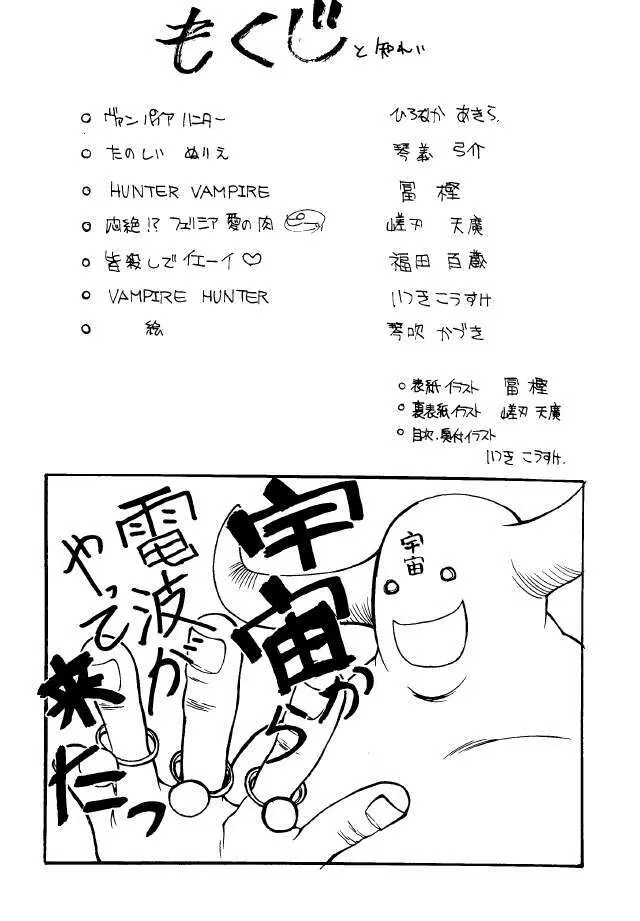 もくじ と知れい
○ ヴァンパイア ハンター ひろなか あきら
○ たのしい ぬりえ 琴義 弓介
○ HUNTER VAMPIRE 冨樫
○ 悶絶!? フェリシア 愛の肉 嵯刃 天廣
○ 皆殺しで イエーイ♡ 福田 百蔵
○ VAMPIRE HUNTER いつき こうすけ
○ 絵 琴吹 かづき
○ 表紙イラスト 冨樫
○ 裏表紙イラスト 嵯刃 天廣
○ 目次・奥付イラスト
いつき こうすけ.
宇宙から
電波が
やって
来たっ
宇宙